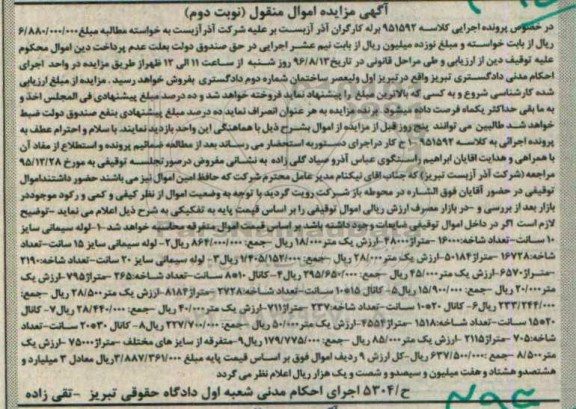 آگهی مزایده اموال منقول (نوبت دوم)
در خصوص پرونده اجرایی کلاسه ۹۵۱۵۹۲ برله کارگران آذر آزبست بر علیه شرکت آذر آزبست به خواسته مطالبه مبلغ ۶/۸۸۰/۰۰۰/۰۰۰
ریال از بابت خواسته و مبلغ نوزده میلیون ریال از بابت نیم عشر اجرایی در حق صندوق دولت بعلت عدم پرداخت دین اموال محکوم
علیه توقیف دین از ارزیابی و طی مراحل قانونی در تاریخ ۹۶/۸/۱۳ روز شنبه از ساعت ۱۱ الی ۱۲ ظهر از طریق مزایده در واحد اجرای
احکام مدنی دادگستری تبریز واقع در تبریز اول ولیعصر ساختمان شماره دوم دادگستری بفروش خواهد رسید. مزایده از مبلغ ارزیابی
شده کارشناسی شروع و به کسی که بالاترین مبلغ را پیشنهاد نماید فروخته خواهد شد و ده درصد مبلغ پیشنهادی فی المجلس اخذ و
به ما بقی حداکثر یکماه فرصت داده میشود برنده مزایده به هر عنوان انصراف نماید ده درصد مبلغ پیشنهادی بنفع صندوق دولت ضبط
خواهد شد طالبین می توانند پنج روز قبل از مزایده از اموال بشرح ذیل با هماهنگی این واحد بازدید نمایند. با سلام و احترام عطف به
پرونده اجرائی به کلاسه ۹۵۱۵۹۲-۱ ج کار در اجرای دستوریه استحضار می رساند بعد از مطالعه ضمائم پرونده و استطلاع از مفاد آن
با همراهی و هدایت آقایان ابراهیم راستگوی عباس آذرو صیاد گلی زاده به نشانی مفروض در صورتجلسه توقیفی به مورخ ۹۵/۱۲/۲۸
مراجعه (شرکت آذر آزبست تبریز) که جناب آقای نیکنام مدیر عامل محترم شرکت که حافظ امین اموال نیز می باشند حضور داشتند اموال
توقیفی در حضور آقایان فوق الشاره در محوطه باز شرکت رویت گردید با توجه به وضعیت اموال از نظر کیفی و کمی و رکود موجود در
بازار بعد از بررسی و -در بازار مصرف ارزش ریالی اموال توقیفی را بر اساس قیمت پایه به تفکیکی به شرح ذیل اعلام می نماید -توضیح
لازم است اگر در داخل اموال توقیفی ضایعات وجود داشته باشد بر اساس قیمت اموال متفرقه محاسبه خواهد شد ۱- لوله سیمانی سایز
۱۰ سانت-تعداد شاخه: ۱۶۰۰۰ -متراژ ۴۸۰۰۰ -ارزش یک متر ۱۸/۰۰۰ ریال -جمع: ۸۶۴/۰۰۰/۰۰۰ ریال ۲- لوله سیمانی سایز ۱۵ سانت-تعداد
شاخه: ۱۶۷۲۸ -متراژ ۵۰۱۸۴ -ارزش یک متر ۲۸/۰۰۰ ریال -جمع: ۱/۴۰۵/۱۵۲/۰۰۰ ریال ۳- لوله سیمانی سایز ۲۰ سانت-تعداد شاخه: ۲۱۹۰
-متراژ ۶۵۷۰ -ارزش یک متر ۴۵/۰۰۰ ریال -جمع: ۲۹۵/۶۵۰/۰۰۰ ریال ۴- کانال ۱۰*۸ سانت-تعداد شاخه: ۲۶۵ -متراژ ۷۹۵ -ارزش یک
متر ۲۰/۰۰۰ ریال -جمع: ۱۵/۹۰۰/۰۰۰ ریال ۵- کانال ۱۵*۱۰ سانت-تعداد شاخه: ۲۷۲۸ -متراژ ۸۱۸۴ -ارزش یک متر ۲۸/۵۰۰ ریال -جمع:
۲۳۳/۲۴۴/۰۰۰ ریال ۶- کانال ۲۰*۱۰ سانت-تعداد شاخه: ۲۳۷ -متراژ ۷۱۱ -ارزش یک متر ۴۰/۰۰۰ ریال -جمع: ۲۸/۴۴۰/۰۰۰ ریال ۷- کانال
۲۰*۱۵ سانت-تعداد شاخه: ۱۵۱۸ -متراژ ۴۵۵۴ -ارزش یک متر ۵۰/۰۰۰ ریال -جمع: ۲۲۷/۷۰۰/۰۰۰ ریال ۸- کانال ۳۰*۲۰ سانت-تعداد
شاخه: ۷۰۵ -متراژ ۲۱۱۵ -ارزش یک متر ۸۵/۰۰۰ ریال -جمع: ۱۷۹/۷۷۵/۰۰۰ ریال ۹- متفرقه از سایز های مختلف -متراژ ۷۵۰۰۰ -ارزش یک
متر ۸/۵۰۰ -جمع: ۶۳۷/۵۰۰/۰۰۰ ریال -کل ارزش ۹ ردیف اموال فوق بر اساس قیمت پایه مبلغ ۳/۸۸۷/۳۶۱/۰۰۰ ریال معادل ۳ میلیارد و
هشتصدو هشتاد و هفت میلیون و سیصدو و شصت و یک هزار ریال اعلام نظر می گردد
ح/۵۳۰۴ اجرای احکام مدنی شعبه اول دادگاه حقوقی تبریز -تقی زاده